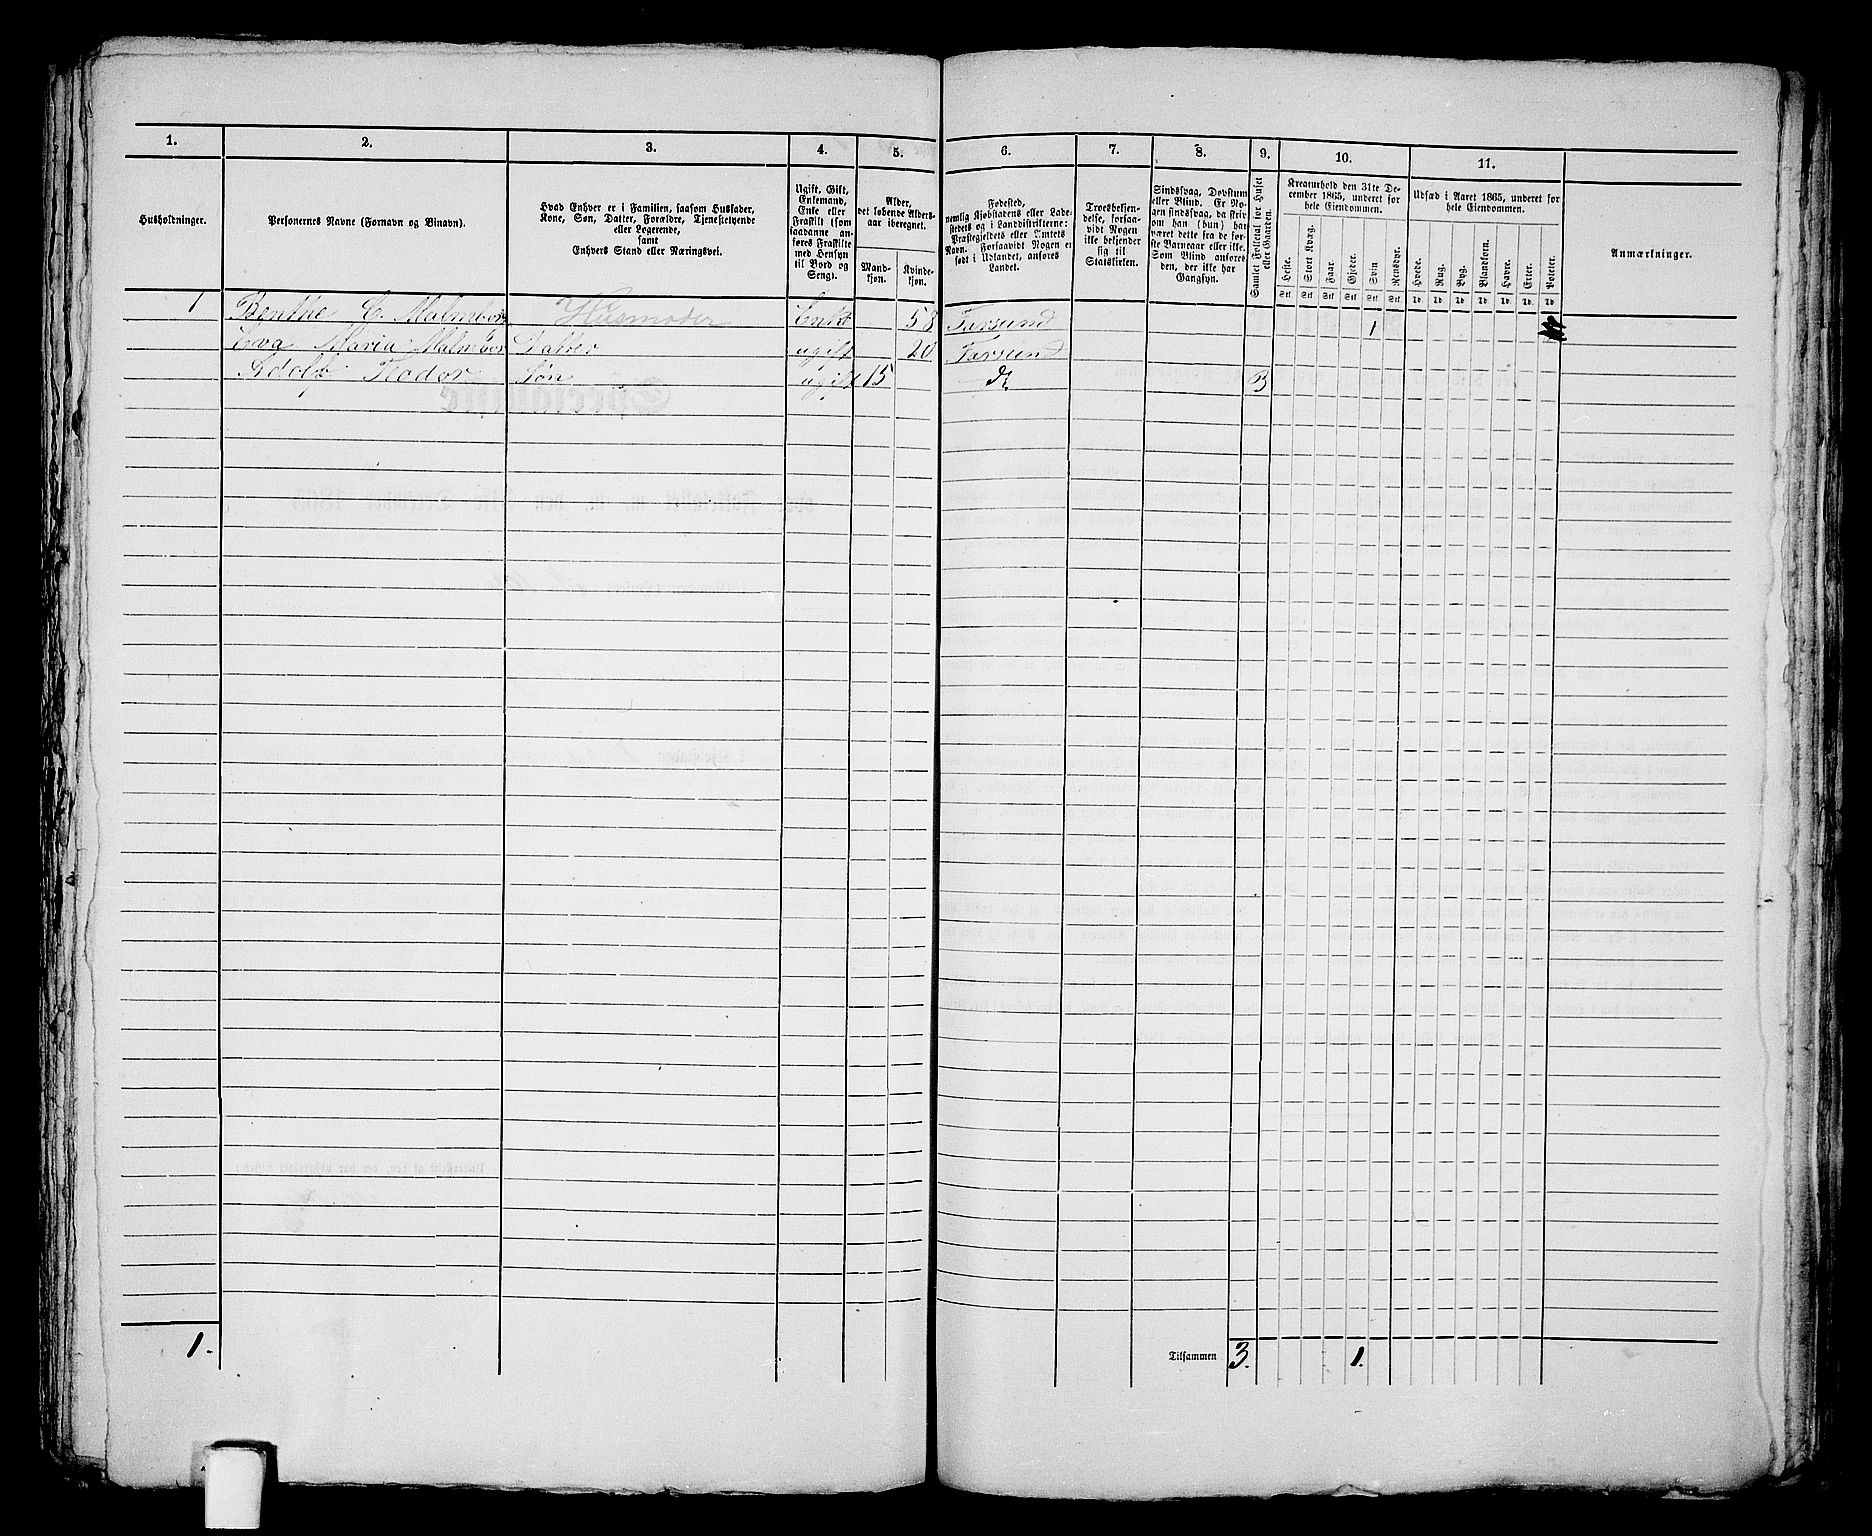 1. 2. 3. 4. 5. 6. 7. 8. 9. 10. 11.
Husholdninger.
Personernes Navne (Fornavn og Binavn).
Hvad Enhver er i Familien, saasom Husfader,
Kone, Søn, Datter, Forældre, Tjenestetyende
eller Logerende,
samt
Enhvers Stand eller Næringsvei.
Ugift, Gift,
Enkemand,
Enke eller
Fraskilt (som
saadanne an-
føres Fraskilte
med Hensyn
til Bord og
Seng).
Alder,
det løbende Alders-
aar iberegnet.
Mand-
kjøn.
Kvinde-
kjøn.
Fødested,
nemlig Kjøbstadens eller Lade-
stedets og i Landdistrikterne:
Præstegjeldets eller Amtets
Navn. Forsaavidt Nogen er
født i Udlandet, anføres
Landet.
Troesbekjen-
delse, forsaa-
vidt Nogen
ikke bekjender
sig til
Statskirken.
Sindssvag, Døvstum
eller Blind. Er No-
gen sindssvag, da skriv
om han (hun) har
været dette fra de før-
ste Barneaar eller ikke.
Som Blind anføres
den, der ikke har
Gangsyn.
Samlet Folketal for Huset
eller Gaarden.
Kreaturhold den 31te De-
cember 1865, underet for
hele Eiendommen.
Heste. Stort Kvæg. Faar. Gjeder. Svin. Rensdyr.
Stk. Stk. Stk. Stk. Stk. Stk.
Udsæd i Aaret 1865, underet for
hele Eiendommen.
Hvede. Rug. Byg. Blandkorn. Havre. Erter. Poteter.
Td. Td. Td. Td. Td. Td. Td.
Anmærkninger.
1 Benthe C. Malmborg Husmoder Enke 58 Farsund 1
Eva Maria Malmbor Datter ugift 20 Farsund
Adolf Teodor Søn ugift 15 do 3
1. Tilsammen 3. 1.